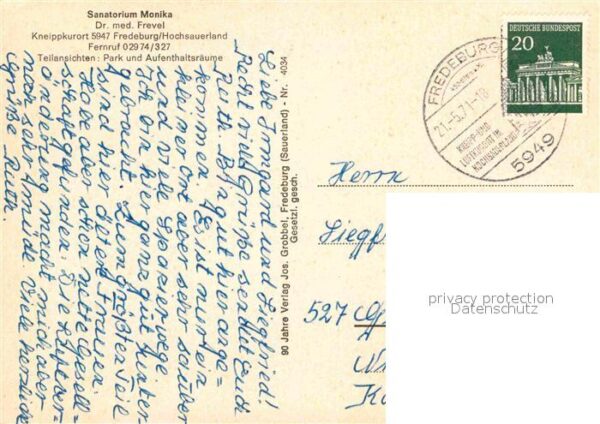 Sanatorium Monika
Dr. med. Frevel
Kneippkurort 5947 Fredeburg/Hochsauerland
Fernruf 02974/327
Teilansichten: Park und Aufenthaltsräume
Liebe Irmgard und Siegfried!
Recht viele Grüße sendet Euch
Ruth. Bin gut hier ange=
kommen. Es ist nur ein
kleiner Ort aber sehr sauber
und viele Spazierwege.
Ich bin hier ganz gut unter=
gebracht. Zum größten Teil
sind hier ältere Frauen.
Habe aber schon nette Gesell=
schaft gefunden. Die Luftver=
änderung macht mich aber
noch sehr müde. Viele herzliche
Grüße Ruth.
90 Jahre Verlag Jos. Grobbel, Fredeburg (Sauerland) - Nr. 4034
Gesetzl. gesch.
FREDEBURG
21.-5.71-18
KNEIPP- UND
LUFTKURORT IM
HOCHSAUERLAND
5949
DEUTSCHE BUNDESPOST
20
Herrn
Siegf
527
privacy protection
Datenschutz